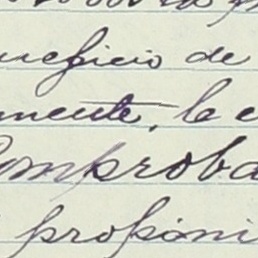 neficio de
mente, le e
Comproba
proponi